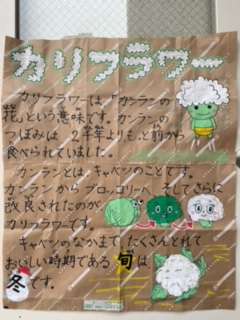 カリフラワー
カリフラワーは、「カンランの
花」という意味です。カンランの
つぼみは 2千年よりもっと前から
食べられていました。
カンランとは、キャベツのことです。
カンランから ブロッコリーへ、そしてさらに
改良されたのが
カリフラワーです。
キャベツのなかまで、たくさんとれて
おいしい時期である 旬は
冬です。